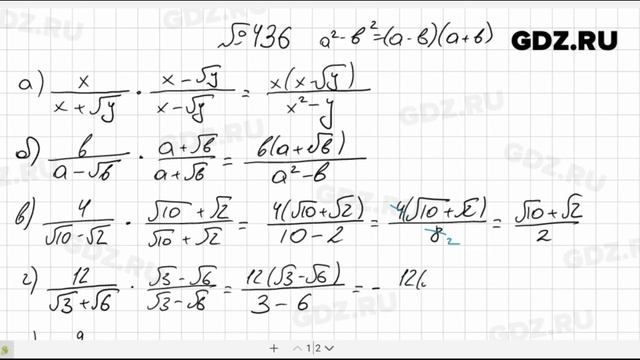 №436 a² - b² = (a - b)(a + b) GDZ.RU
а) x/(x + √y) · (x - √y)/(x - √y) = x(x - √y)/(x² - y)
б) b/(a - √b) · (a + √b)/(a + √b) = b(a + √b)/(a² - b)
в) 4/(√10 - √2) · (√10 + √2)/(√10 + √2) = 4(√10 + √2)/(10 - 2) = 4(√10 + √2)/8 2 = (√10 + √2)/2
г) 12/(√3 + √6) · (√3 - √6)/(√3 - √6) = 12(√3 - √6)/(3 - 6) = - 12(
+ 1|2